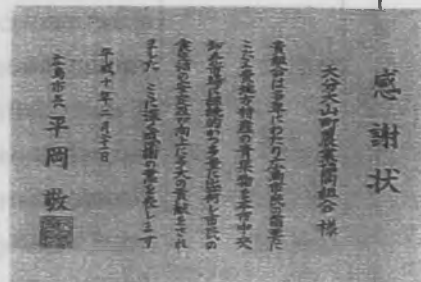 感謝状
大分大山町農業協同組合 様
貴組合は多年にわたり広島市民の需要に
こたえ貴地方特産の青果物を本市中央
卸売市場に継続的かつ多量に出荷し市民の
食生活の安定及び向上に多大の貢献をされ
ました ここに深く感謝の意を表します
平成十年二月二十一日
広島市長 平岡敬